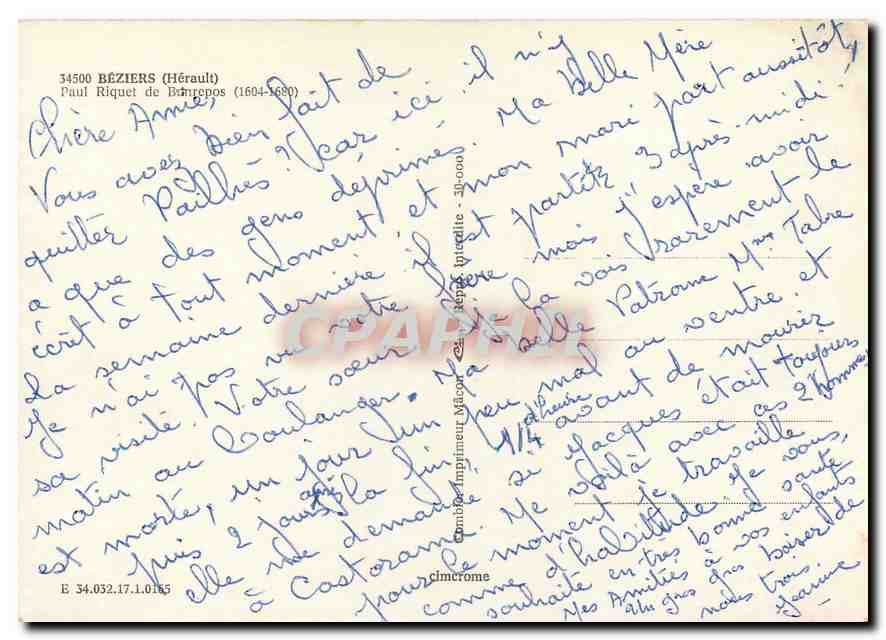 34500 BÉZIERS (Hérault)
Paul Riquet de Bonrepos (1604-1680)
Chère Amie,
Vous avez bien fait de
quitter Pailhès ? car ici, il n'y
a que des gens déprimés. Ma Belle Mère
écrit à tout moment, et mon mari part aussitôt,
La semaine dernière il est partit à 3 après-midi !
Je n'ai pas vu votre Père mais j'espère avoir
sa visite. Votre sœur je la vois rarement le
matin au boulanger. Ma belle Patronne Mme Tabre
est morte, un jour un peu mal au ventre et
puis 2 jours après la fin, 1/4 d'heure avant de mourir
elle me demandé si Jacques était toujours
à Castorama. Me voilà avec ces 2 hommes
pour le moment je travaille
comme d'habitude. Je vous,
souhaite en très bonne santé
Mes Amitiés à vos enfants
Un gros gros baiser de
nous trois.
Jeannine
E 34.032.17.1.0165
cimcrome
Combier Imprimeur Mâcon
Repro. Interdite - 30-000
CPAPHIL